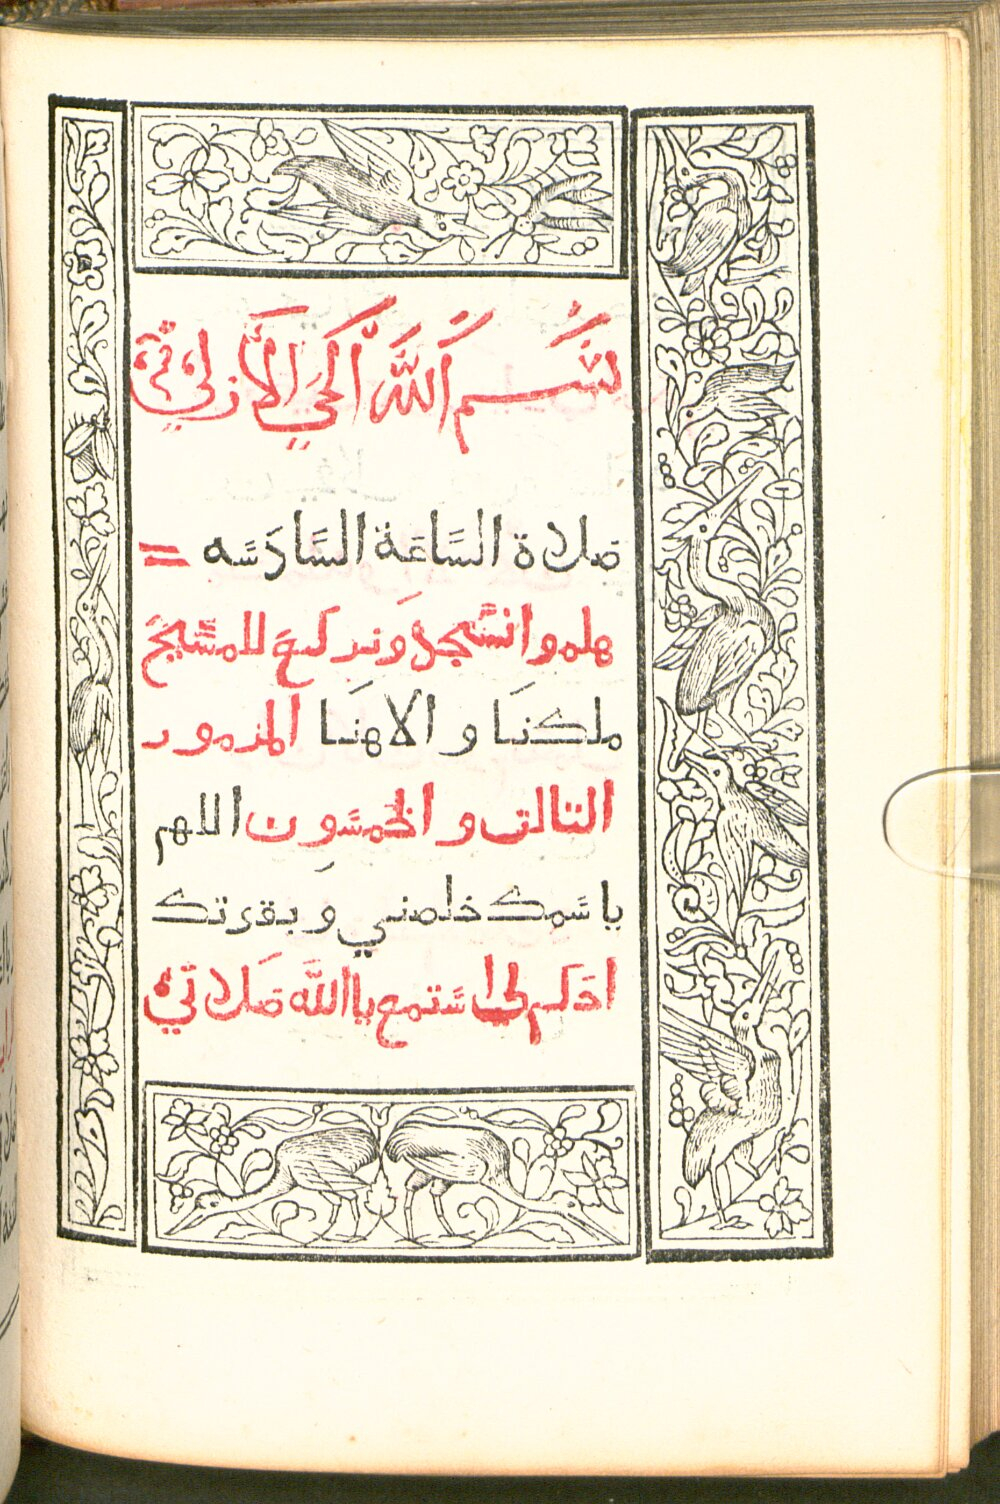 بسم الله الحي الازلي
صلاة الساعة السادسه
هلموا نسجد ونركع للمسيح
ملكنا والاهنا المزمور
التالت والخمسون اللهم
باسمك خلصني وبقوتك
احكم لي استمع يا الله صلاتي